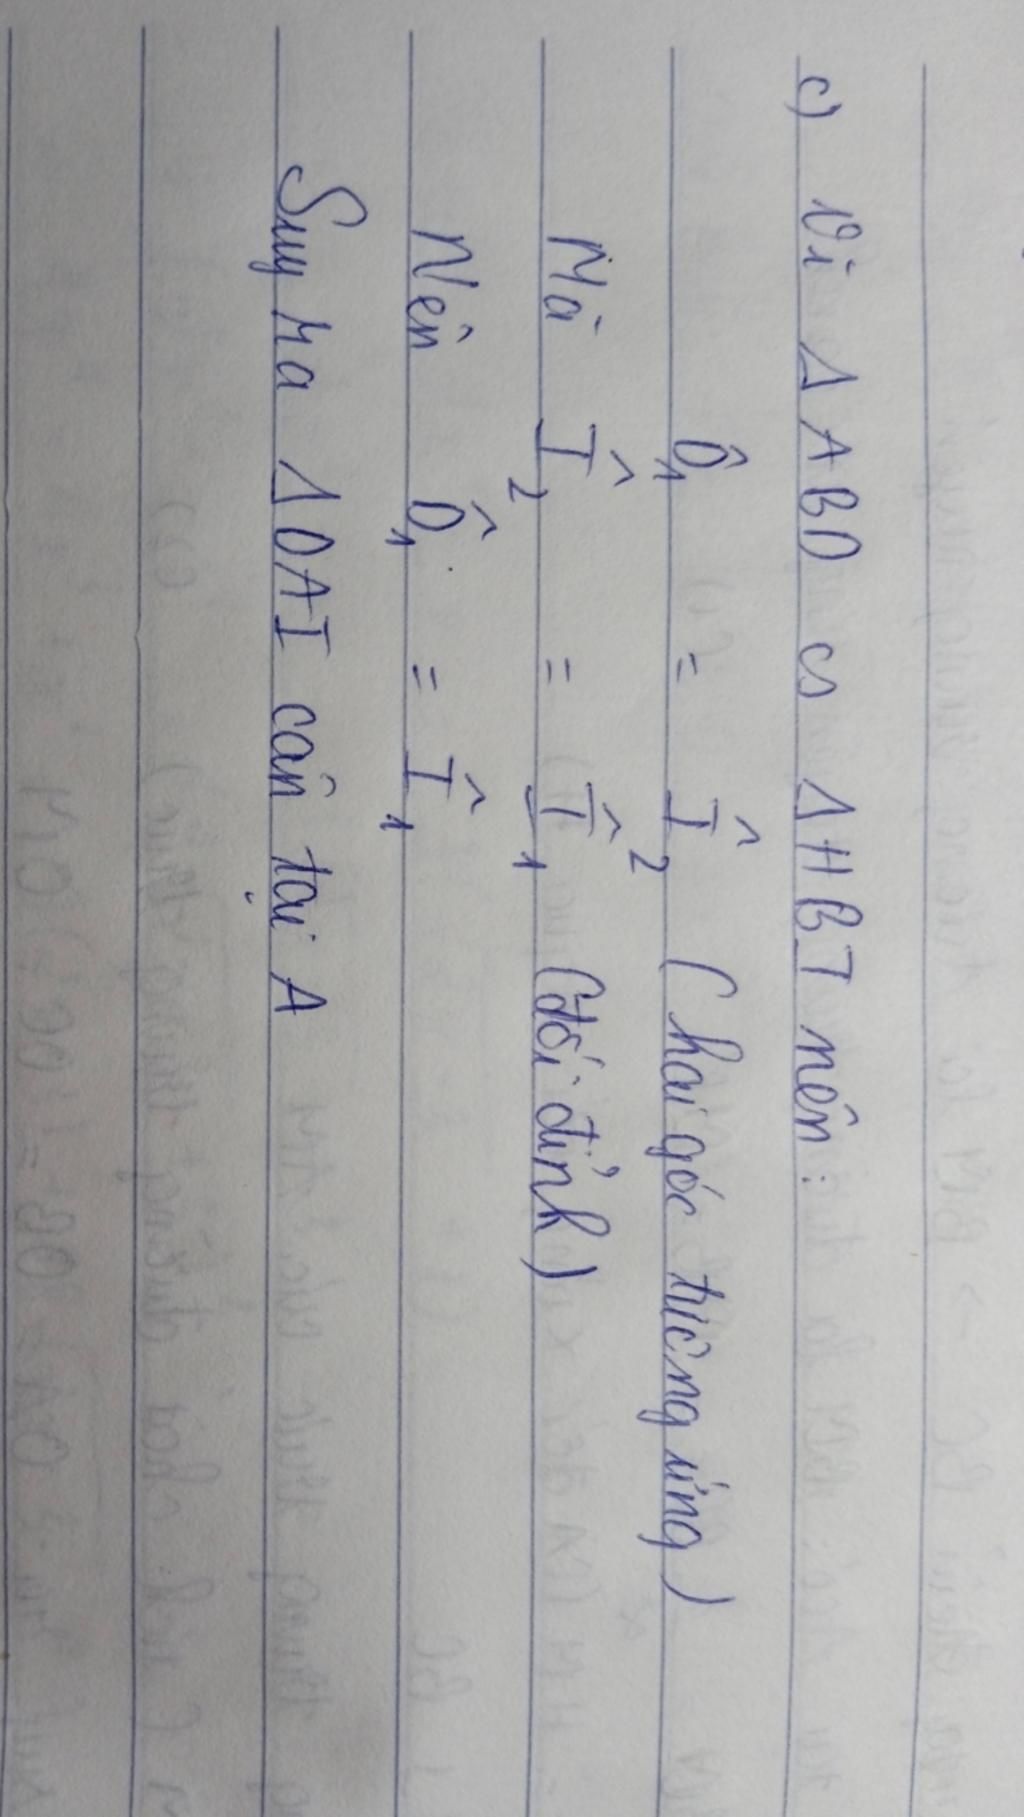 c) Vì Δ ABO ᔕ Δ HBI nên:
Ô₁ = Î₂ (hai góc tương ứng)
Mà Î₂ = Î₁ (đối đỉnh)
Nên Ô₁ = Î₁
Suy ra Δ OAI cân tại A